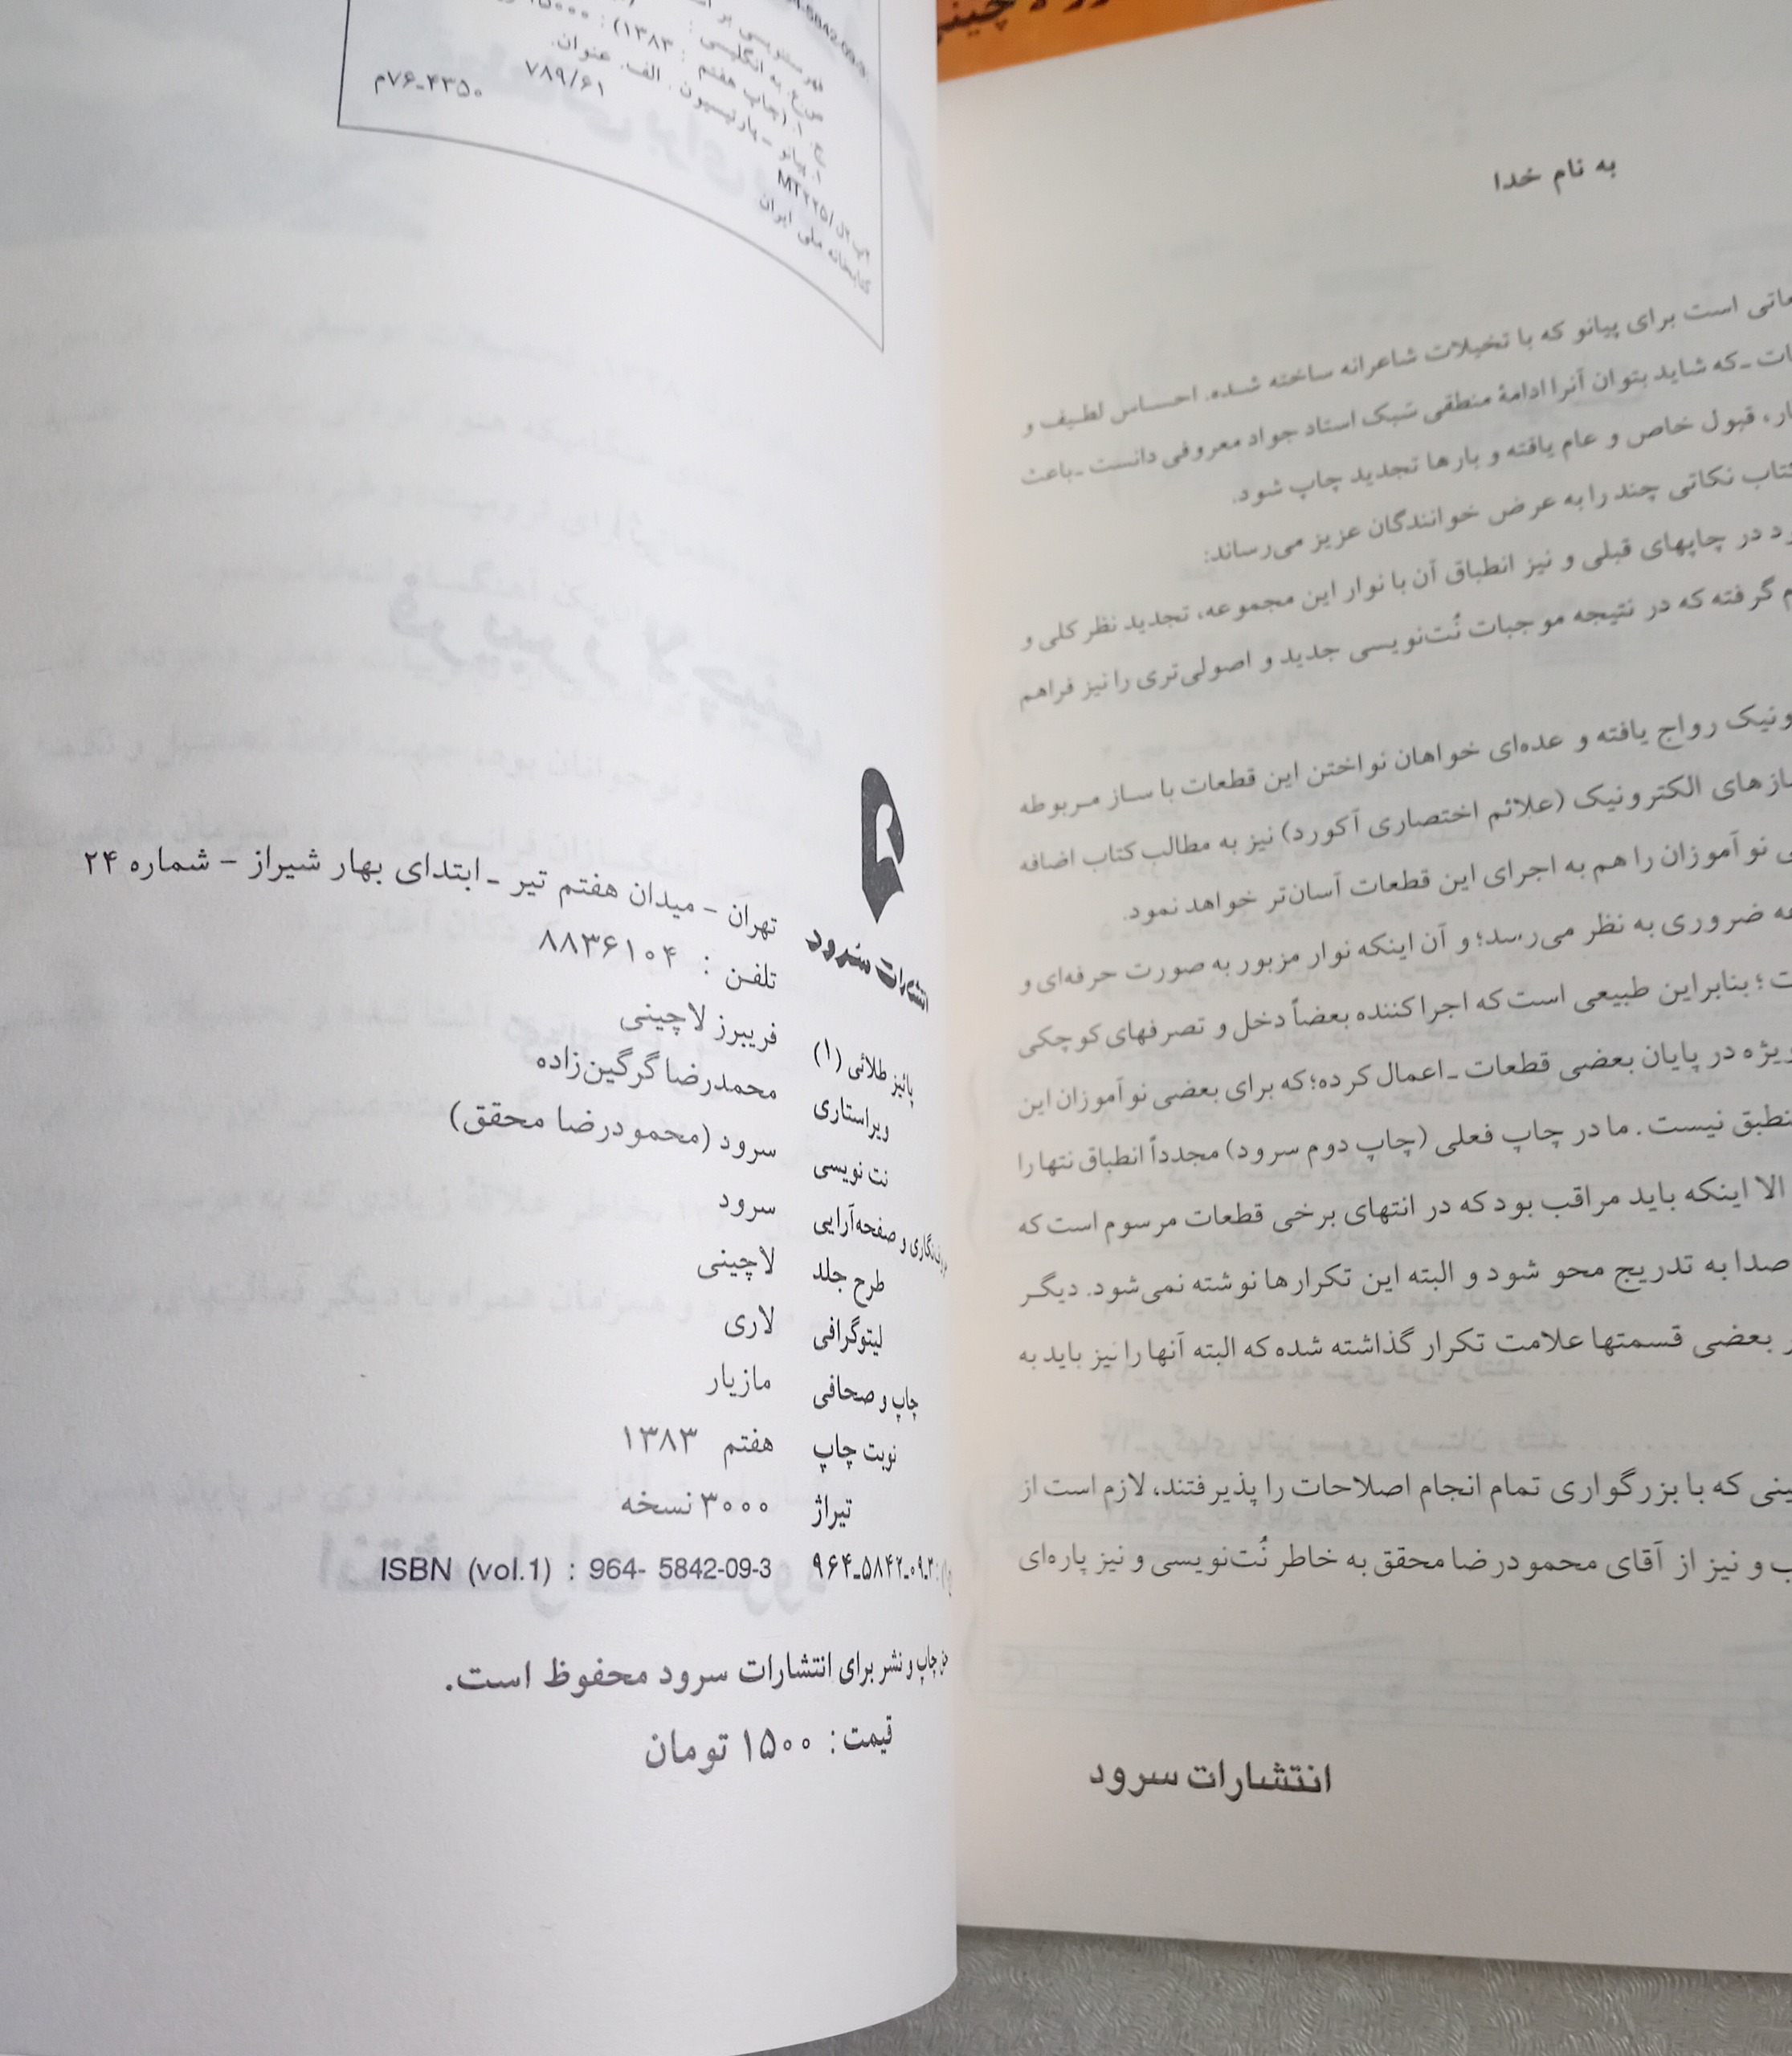 فهرستنویسی بر
ص.ع. به انگلیسی:
ج. ۱. (چاپ هفتم : ۱۳۸۳) :
۱. پیانو - پارتیسیون. الف. عنوان.
۷۸۹/۶۱
MT۲۲۵/
کتابخانه ملی ایران
۷۶-۴۳۵۰م
انتشارات سرود
تهران - میدان هفتم تیر - ابتدای بهار شیراز - شماره ۲۴
تلفن : ۸۸۳۶۱۰۴
پائیز طلائی (۱) فریبرز لاچینی
ویراستاری محمدرضا گرگین‌زاده
نت نویسی سرود (محمودرضا محقق)
نگاری و صفحه‌آرایی سرود
طرح جلد لاچینی
لیتوگرافی لاری
چاپ و صحافی مازیار
نوبت چاپ هفتم ۱۳۸۳
تیراژ ۳۰۰۰ نسخه
۹۶۴-۵۸۴۲-۰۹-۳ ISBN (vol.1) : 964- 5842-09-3
چاپ و نشر برای انتشارات سرود محفوظ است.
قیمت: ۱۵۰۰ تومان
به نام خدا
است برای پیانو که با تخیلات شاعرانه ساخته شده. احساس لطیف و
ـ که شاید بتوان آنرا ادامهٔ منطقی سَبک استاد جواد معروفی دانست ـ باعث
قبول خاص و عام یافته و بارها تجدید چاپ شود.
کتاب نکاتی چند را به عرض خوانندگان عزیز می‌رساند:
در چاپهای قبلی و نیز انطباق آن با نوار این مجموعه، تجدید نظر کلی و
گرفته که در نتیجه موجبات نُت‌نویسی جدید و اصولی‌تری را نیز فراهم
رواج یافته و عده‌ای خواهان نواختن این قطعات با ساز مربوطه
سازهای الکترونیک (علائم اختصاری آکورد) نیز به مطالب کتاب اضافه
نوآموزان را هم به اجرای این قطعات آسان‌تر خواهد نمود.
ضروری به نظر می‌رسد؛ و آن اینکه نوار مزبور به صورت حرفه‌ای و
؛ بنابراین طبیعی است که اجراکننده بعضاً دخل و تصرفهای کوچکی
ویژه در پایان بعضی قطعات ـ اعمال کرده؛ که برای بعضی نوآموزان این
منطبق نیست. ما در چاپ فعلی (چاپ دوم سرود) مجدداً انطباق نتها را
الا اینکه باید مراقب بود که در انتهای برخی قطعات مرسوم است که
صدا به تدریج محو شود و البته این تکرارها نوشته نمی‌شود. دیگر
بعضی قسمتها علامت تکرار گذاشته شده که البته آنها را نیز باید به
که با بزرگواری تمام انجام اصلاحات را پذیرفتند، لازم است از
و نیز از آقای محمودرضا محقق به خاطر نُت‌نویسی و نیز پاره‌ای
انتشارات سرود